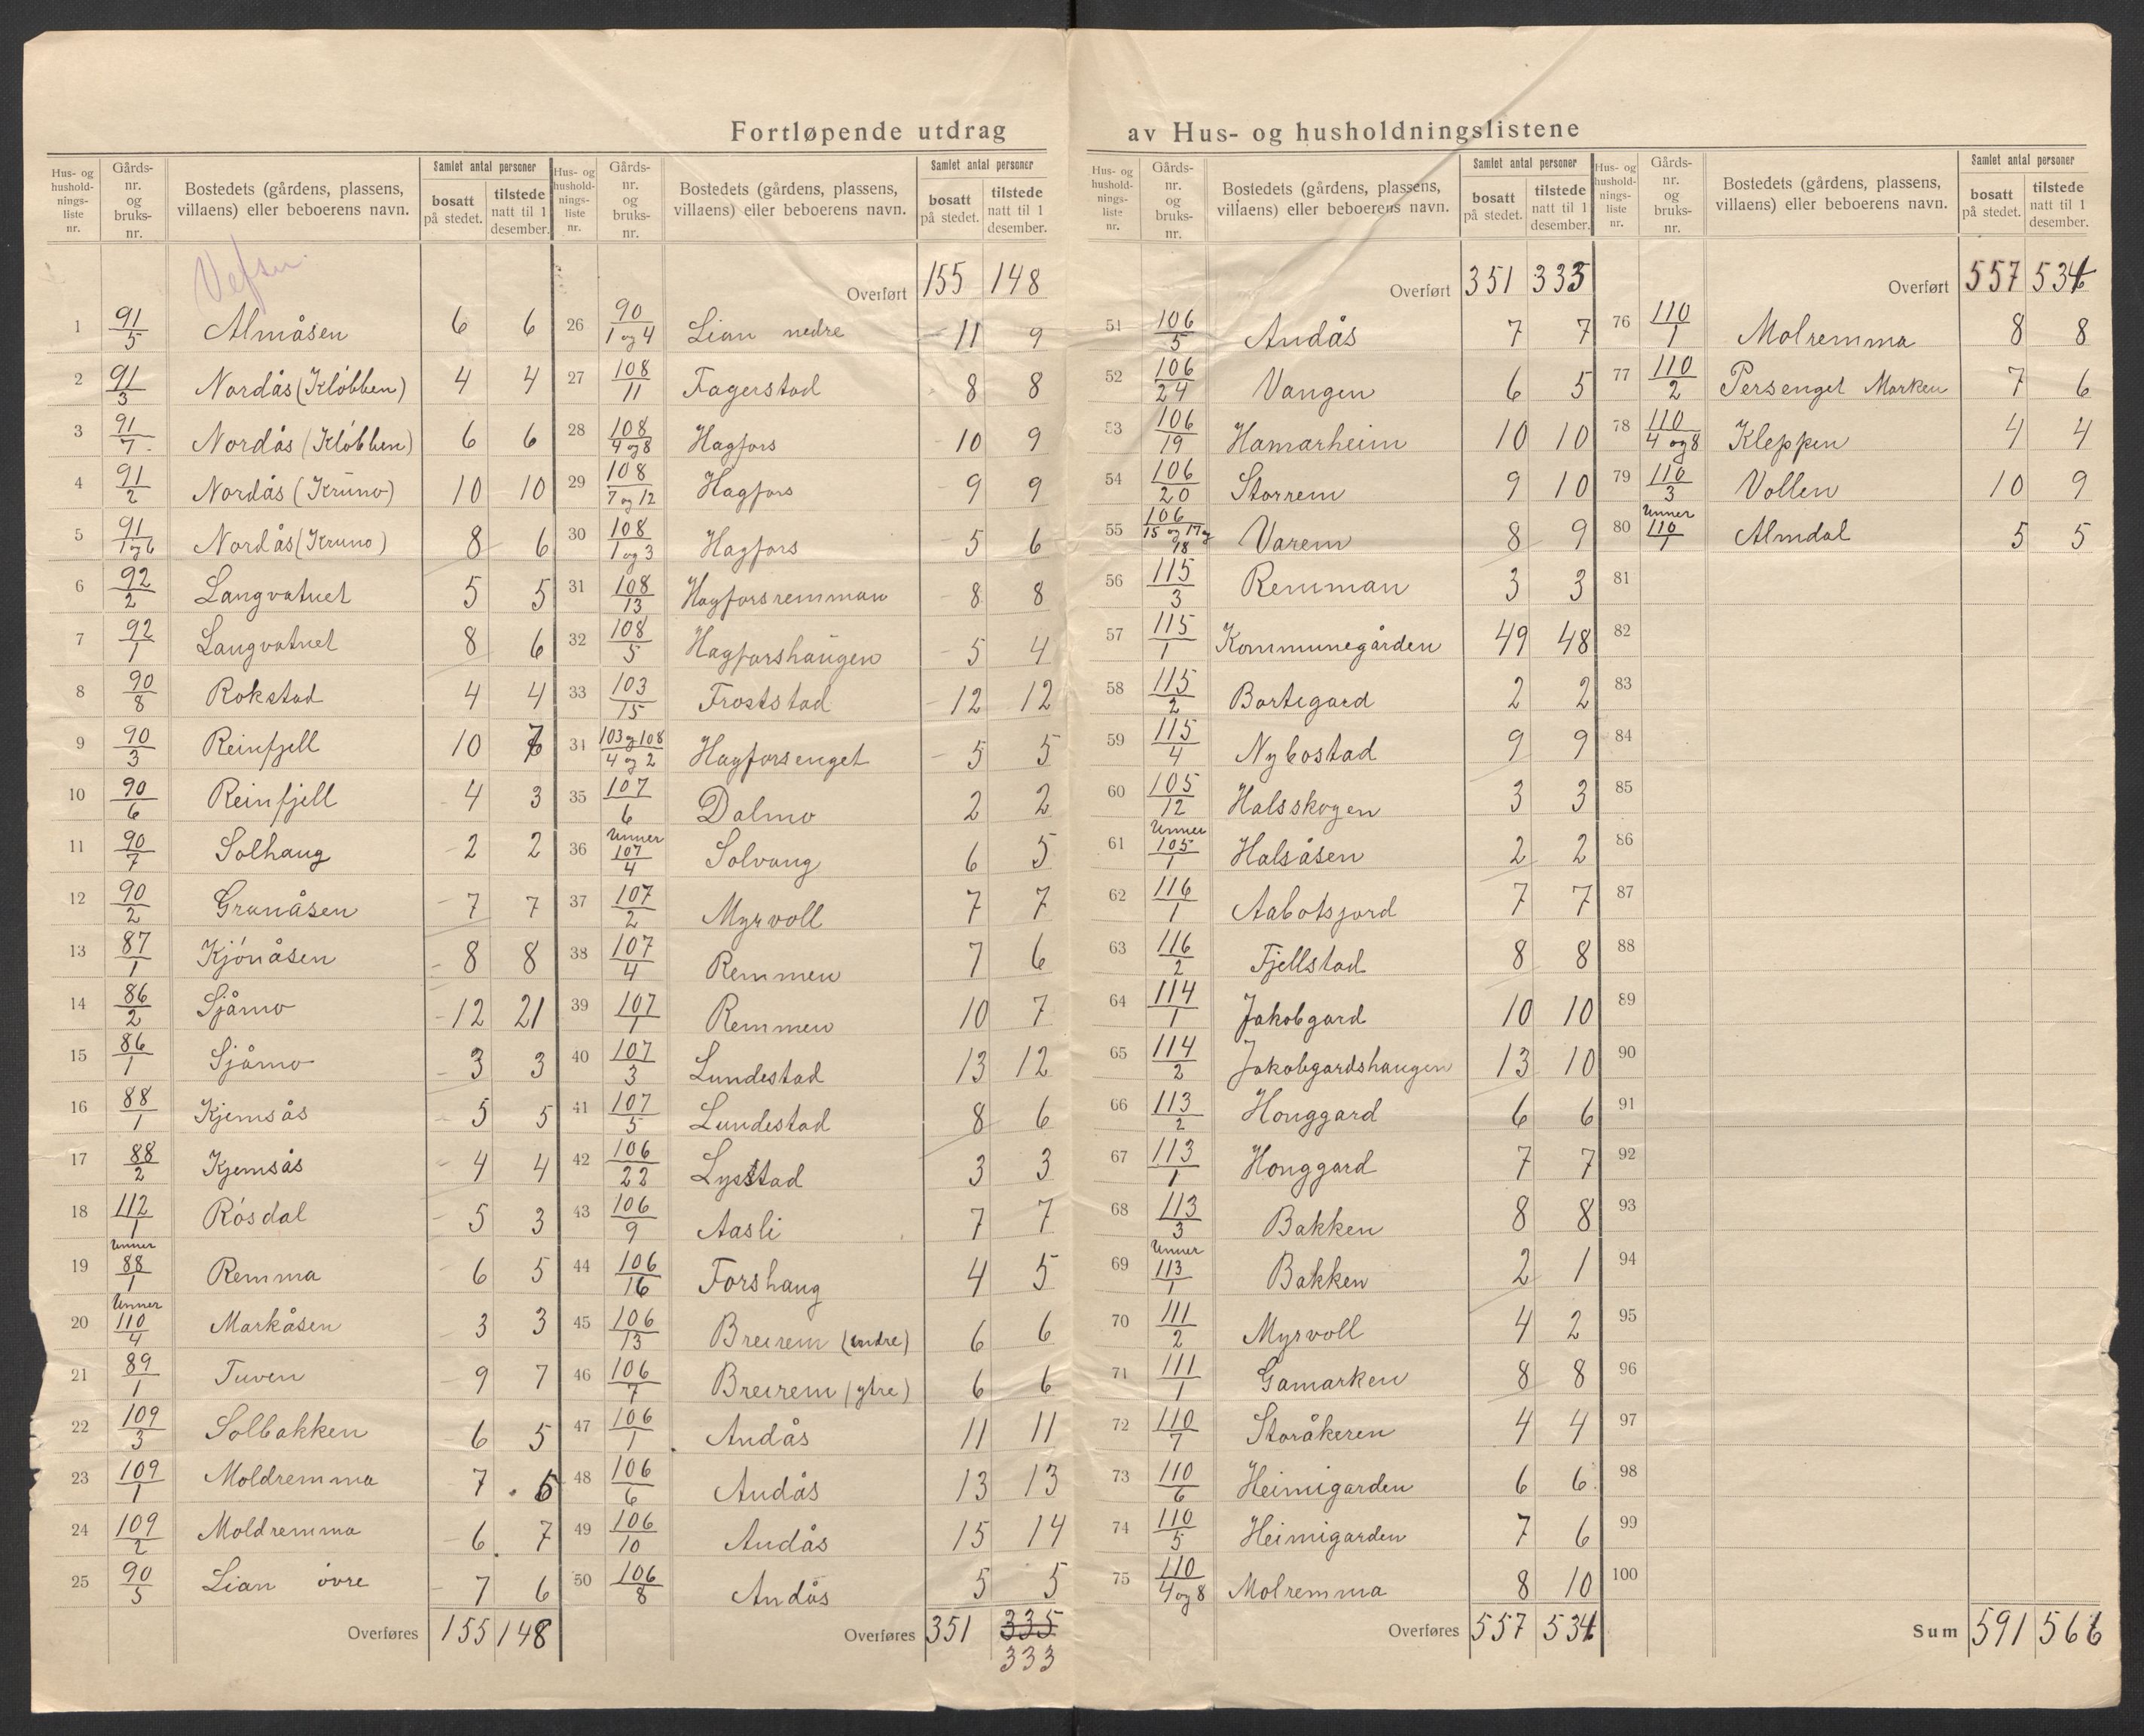 Fortløpende utdrag av Hus- og husholdningslistene
Hus- og husholdnings-liste nr. | Gårds-nr. og bruks-nr. | Bostedets (gårdens, plassens, villaens) eller beboerens navn. | Samlet antal personer | bosatt på stedet. | tilstede natt til 1 desember.
Vefsn.
1 91/5 Almåsen 6 6
2 91/3 Nordås (Kløbben) 4 4
3 91/7 Nordås (Kløbben) 6 6
4 91/2 Nordås (Kruno) 10 10
5 91/1 og 6 Nordås (Kruno) 8 6
6 92/2 Langvatnet 5 5
7 92/1 Langvatnet 8 6
8 90/8 Rokstad 4 4
9 90/3 Reinfjell 10
10 90/6 Reinfjell 4 3
11 90/7 Solhaug 2 2
12 90/2 Granåsen 7 7
13 87/1 Kjónåsen 8 8
14 86/2 Sjåmo 12 21
15 86/1 Sjåmo 3 3
16 88/1 Kjemsås 5 5
17 88/2 Kjemsås 4 4
18 112/1 Rósdal 5 3
19 Unner 88/1 Remma 6 5
20 Unner 110/4 Markåsen 3 3
21 89/1 Tuven 9 7
22 109/3 Solbakken 6 5
23 109/1 Moldremma 7
24 109/2 Moldremma 6 7
25 90/5 Lian óvre 7 6
Overføres 155 148
Hus- og husholdnings-liste nr. | Gårds-nr. og bruks-nr. | Bostedets (gårdens, plassens, villaens) eller beboerens navn. | Samlet antal personer | bosatt på stedet. | tilstede natt til 1 desember.
Overført 155 148
26 90/1 og 4 Lian nedre 11 9
27 108/11 Fagerstad 8 8
28 108/4 og 8 Hagfors 10 9
29 108/7 og 12 Hagfors 9 9
30 108/1 og 3 Hagfors 5 6
31 108/13 Hagforsremman 8 8
32 108/5 Hagforshaugen 5 4
33 103/15 Froststad 12 12
34 103 og 108/4 og 2 Hagforsenget 5 5
35 107/6 Dalmo 2 2
36 Unner 107/4 Solvang 6 5
37 107/2 Myrvoll 7 7
38 107/4 Remmen 7 6
39 107/1 Remmen 10 7
40 107/3 Lundestad 13 12
41 107/5 Lundestad 8 6
42 106/22 Lysstad 3 3
43 106/9 Aasli 7 7
44 106/16 Forshaug 4 5
45 106/13 Breirem (indre) 6 6
46 106/7 Breirem (ytre) 6 6
47 106/1 Andås 11 11
48 106/6 Andås 13 13
49 106/10 Andås 15 14
50 106/8 Andås 5 5
Overføres 351 335
333
Hus- og husholdnings-liste nr. | Gårds-nr. og bruks-nr. | Bostedets (gårdens, plassens, villaens) eller beboerens navn. | Samlet antal personer | bosatt på stedet. | tilstede natt til 1 desember.
Overført 351 333
51 106/5 Andås 7 7
52 106/24 Vangen 6 5
53 106/19 Hamarheim 10 10
54 106/20 Storrem 9 10
55 106/15 og 17 og 18 Varem 8 9
56 115/3 Remman 3 3
57 115/1 Kommunegården 49 48
58 115/2 Bortigard 2 2
59 115/4 Nybostad 9 9
60 105/12 Halsskogen 3 3
61 Unner 105/1 Halsåsen 2 2
62 116/1 Aabotsjord 7 7
63 116/2 Fjellstad 8 8
64 114/1 Jakobgard 10 10
65 114/2 Jakobgardshaugen 13 10
66 113/2 Honggard 6 6
67 113/1 Honggard 7 7
68 113/3 Bakken 8 8
69 Unner 113/1 Bakken 2 1
70 111/2 Myrvoll 4 2
71 111/1 Gamarken 8 8
72 110/7 Storåkeren 4 4
73 110/6 Heimigarden 6 6
74 110/5 Heimigarden 7 6
75 110/4 og 8 Molremma 8 10
Overføres 557 534
Hus- og husholdnings-liste nr. | Gårds-nr. og bruks-nr. | Bostedets (gårdens, plassens, villaens) eller beboerens navn. | Samlet antal personer | bosatt på stedet. | tilstede natt til 1 desember.
Overført 557 534
76 110/1 Molremma 8 8
77 110/2 Persenget Marken 7 6
78 110/4 og 8 Kleppen 4 4
79 110/3 Vollen 10 9
80 Unner 110/1 Almdal 5 5
81
82
83
84
85
86
87
88
89
90
91
92
93
94
95
96
97
98
99
100
Sum 591 566